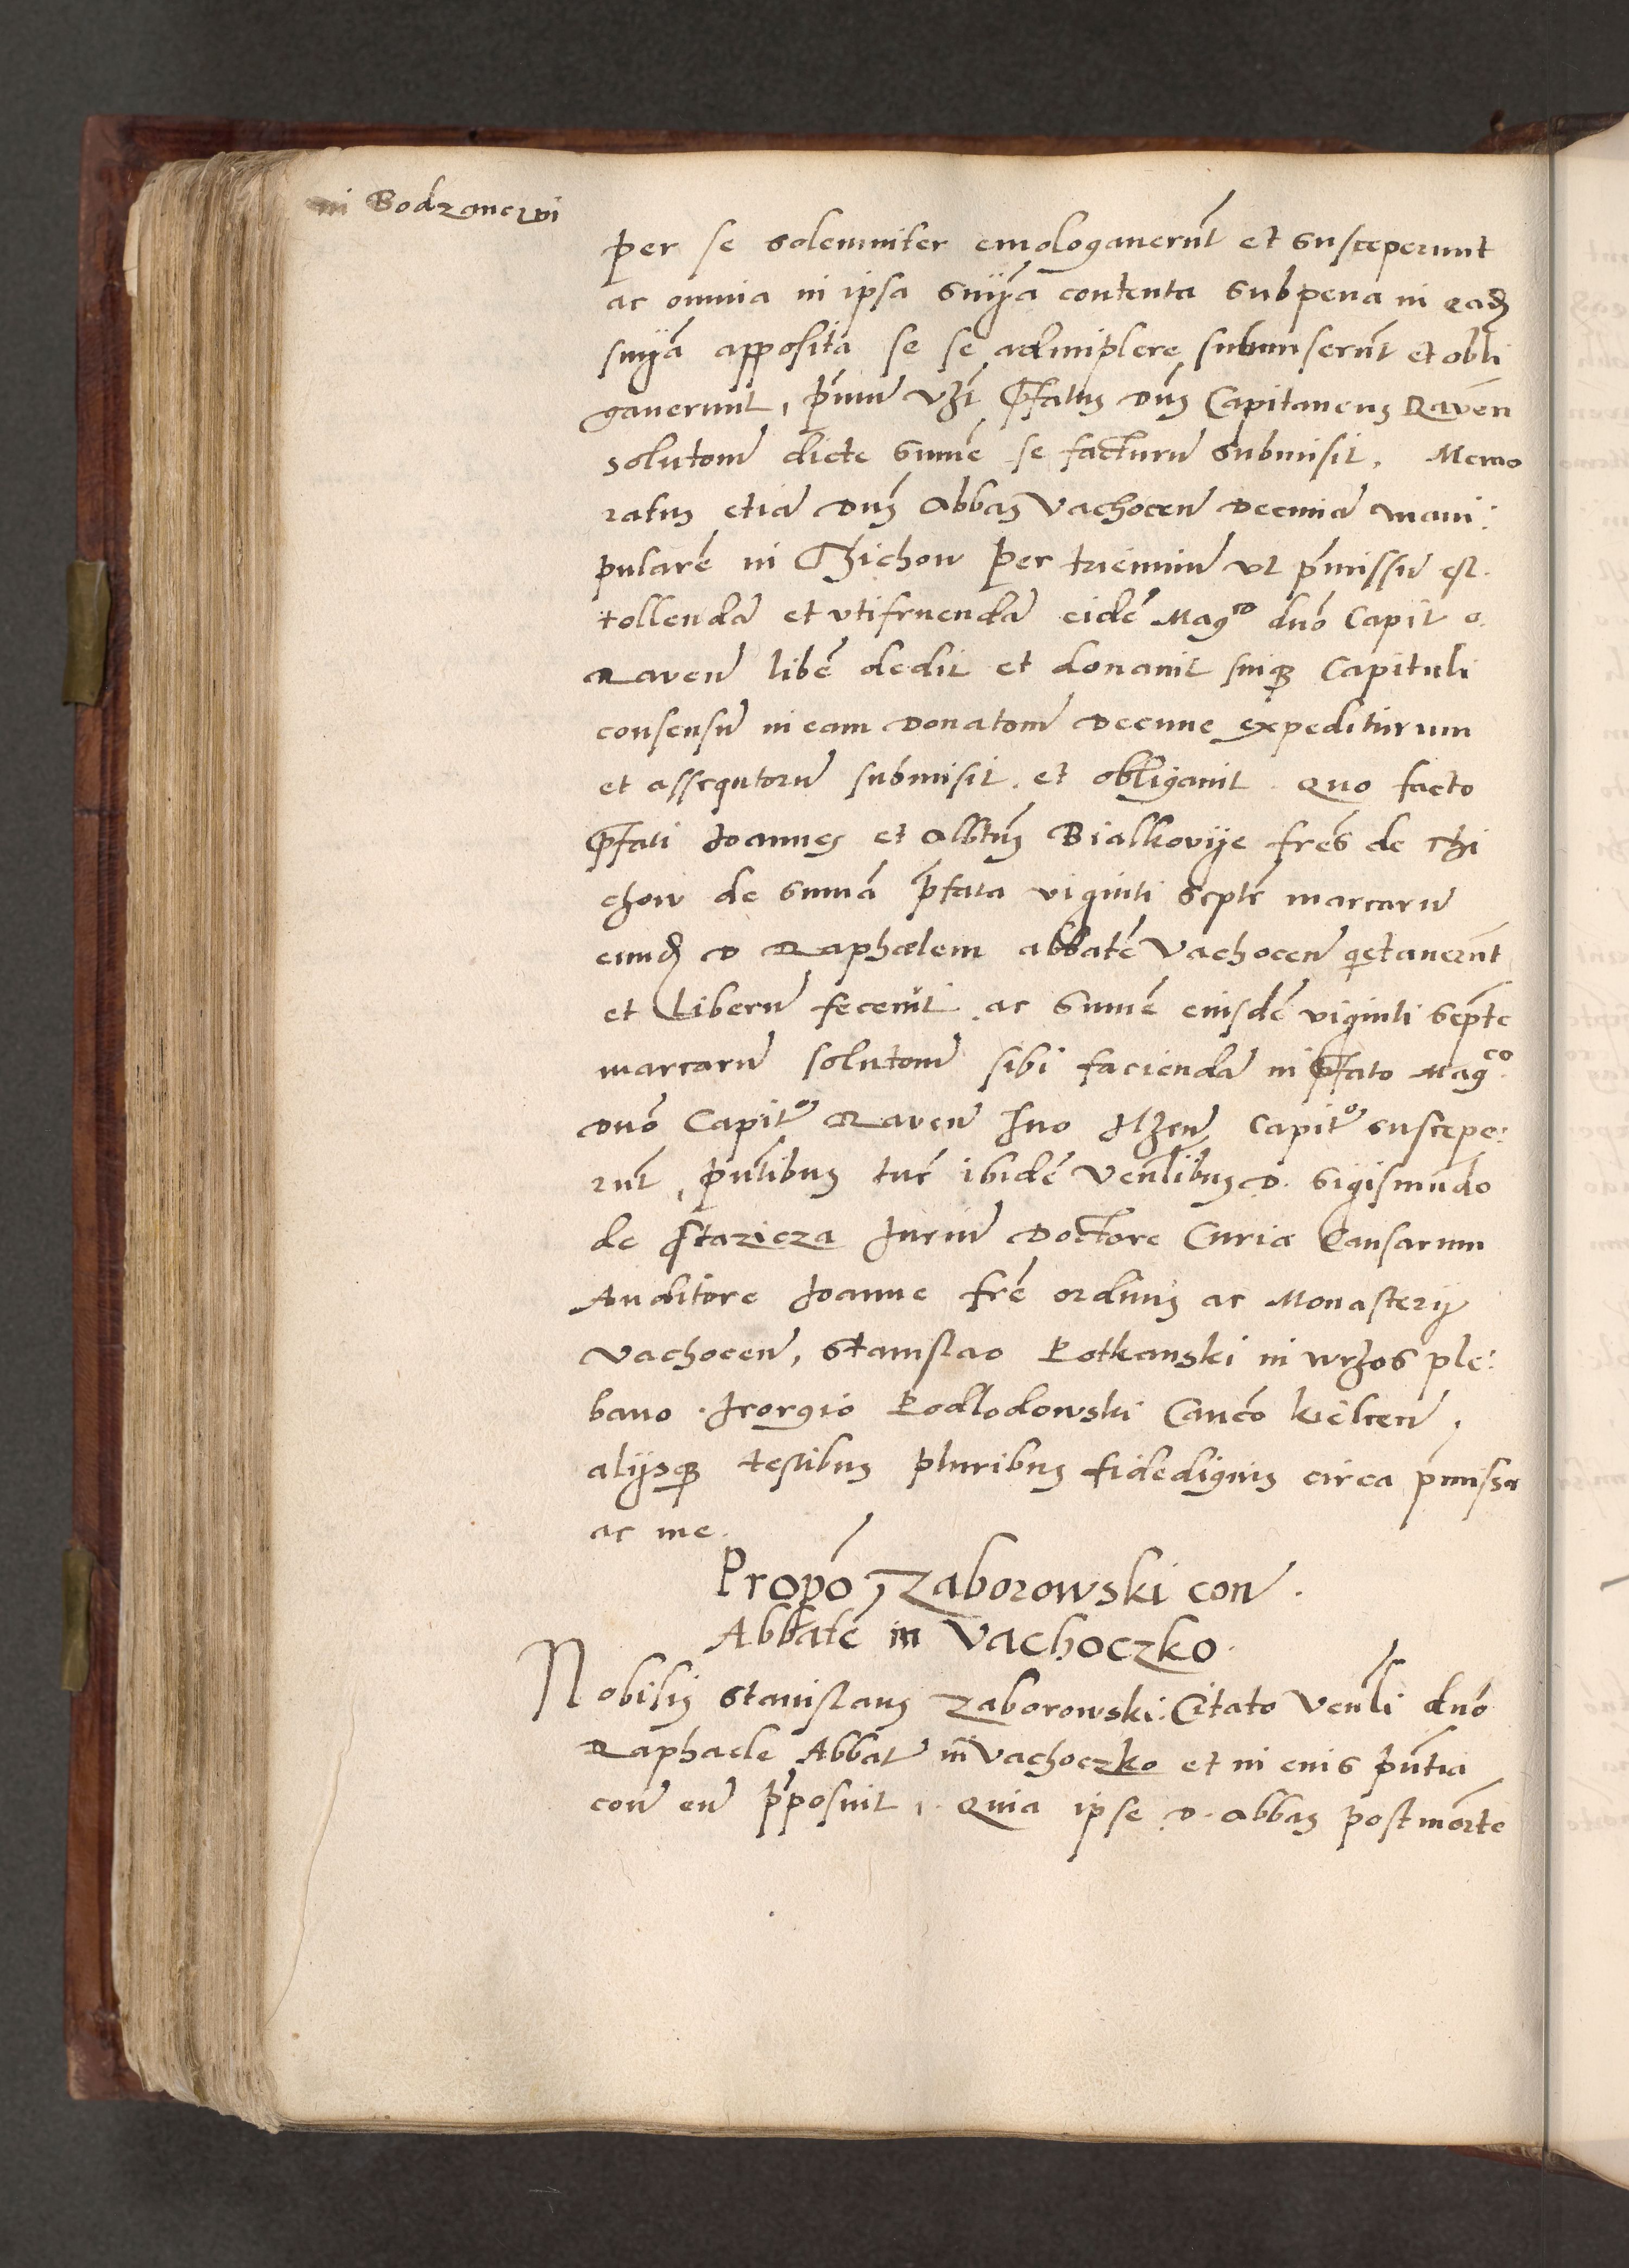 in Bodzanczin
per se solemniter emologauerūt et susceperunt
ac omnia in ipsa snīa contenta sub pena in eadē
snīa apposita se se adimplere submiserūt et obli
gauerunt, primū vz̄ pfatus dn̄s Capitaneus Raven̄
solutionē dicte sum̄e se facturū submisit. Memo
ratus etiā dn̄s Abbas Vachocen̄ decimā mani:
pularē in Chichow per trienniū vt p̄missū est.
tollendā et vtifruendā eidē Magco dnō Capit o.
Raven̄ liberē dedit et donauit suiq Capituli
consensū in eam donationē decime expediturum
et assequturū submisit. et obligauit. Quo facto
pfati Joannes et Albtūs Bialkovije fres de Chi
chow de summa pfata viginti septē marcarū
eundē D Raphaelem abbatē Vachocen̄ qietauerūt
et liberū fecerūt. ac sum̄e eiusdē viginti septē
marcarū solutionē sibi faciendā in pfato Magco.
dnō Capito Raven̄ suo Ilzen̄ Capito suscepe:
rūt, pūtibus tūc ibidē Venlibus D. Sigismūdo
de Stazicza Juriū Doctore Curiæ Causarum
Auditore Joanne frē ordinis ac Monasterij
Vachocen̄, Stanislao Kotkanski in Wrzos ple:
bano. Georgio Podlodowski Canco kielcen̄,
alijsq testibus pluribus fidedignis circa p̄missa
ac me.
Propō Zaborowski con̄.
Abbatē in Vachoczko.
Nobilis Stanislaus Zaborowski. Citato Venli dnō
Raphaele Abbate in Vachoczko et in eius pūtia
con̄ eū pposuit. Quia ipse D. abbas post mortē